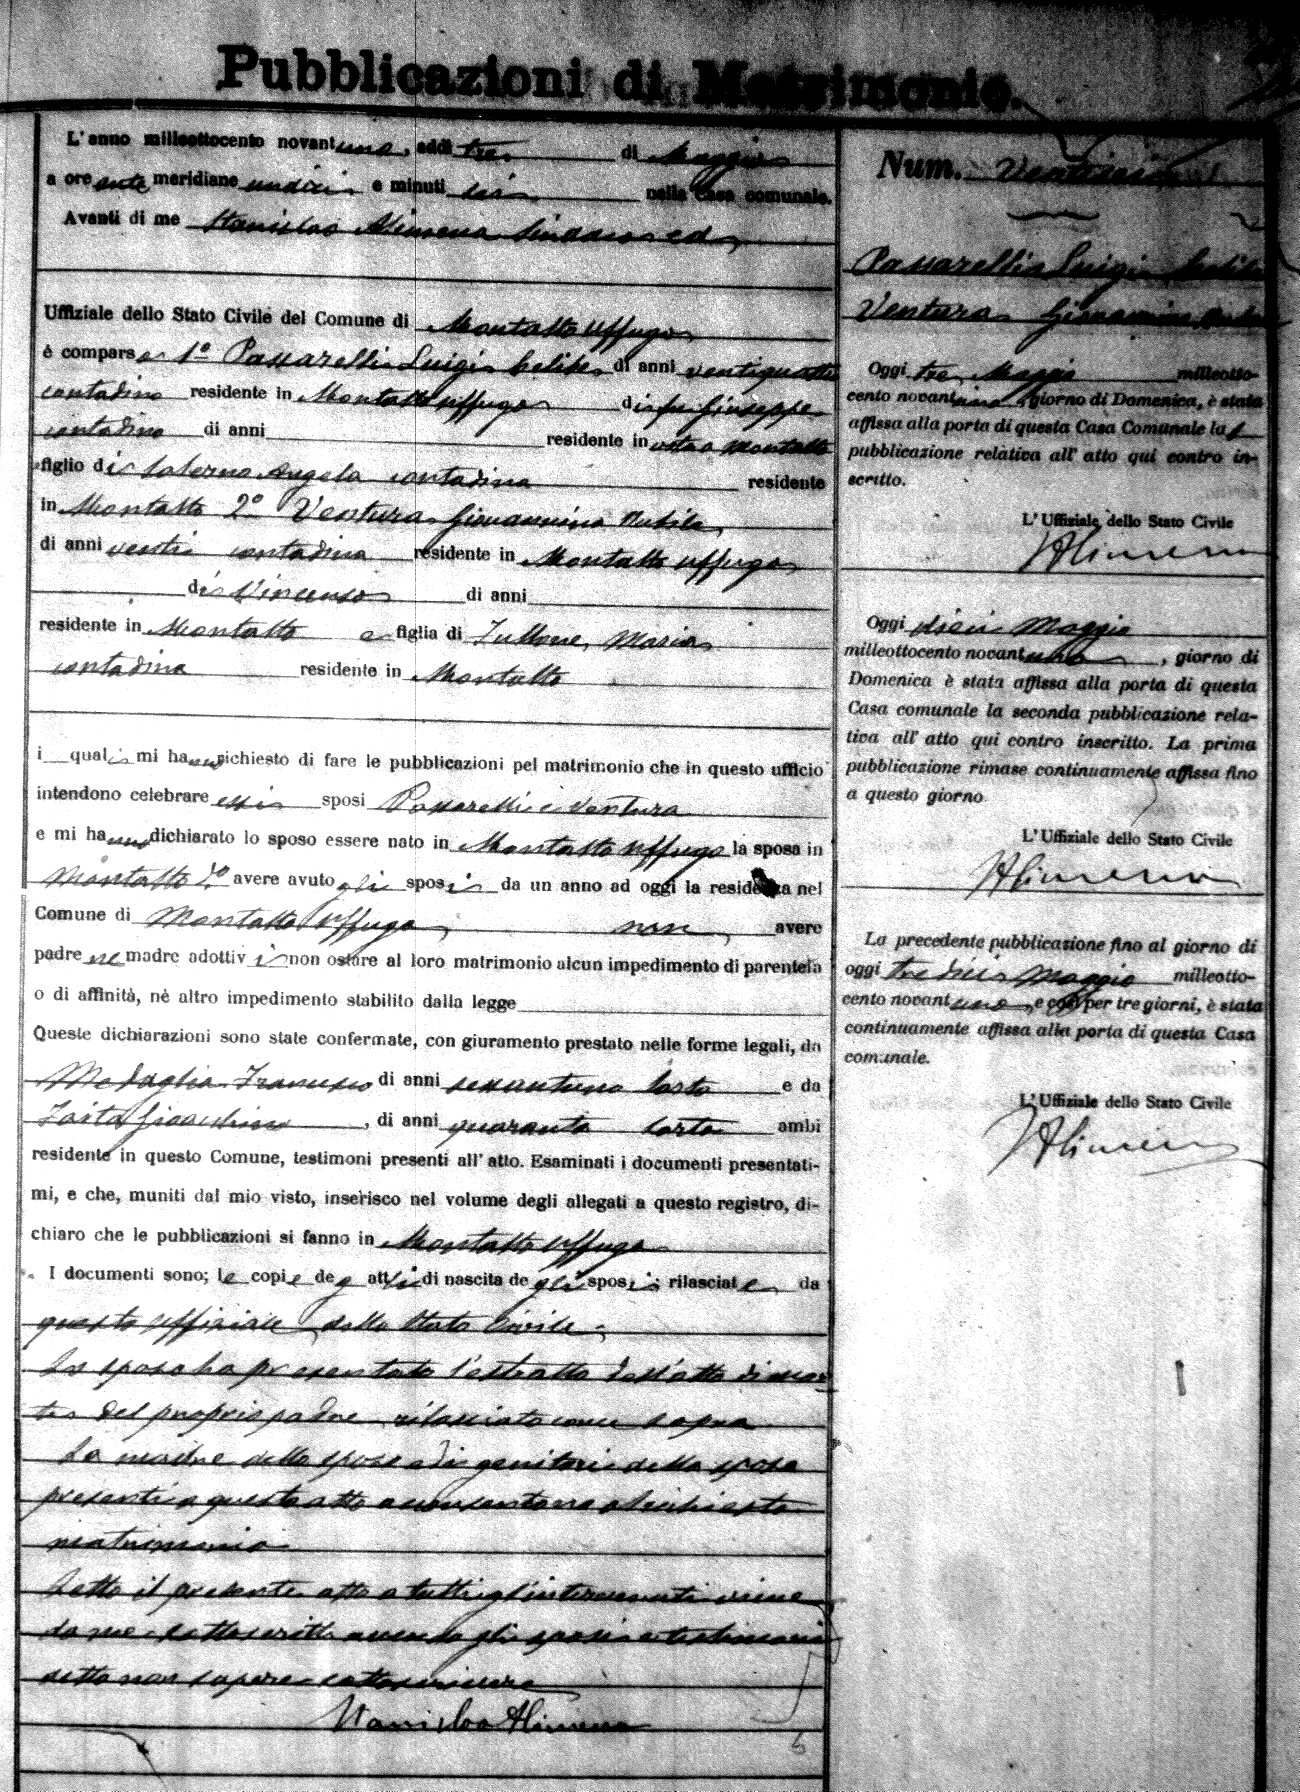 Pubblicazioni di Matrimonio.
L'anno milleottocento novantuno, addì tre di Maggio
a ore ante meridiane undici e minuti nella Casa comunale.
Avanti di me Stanislao Alimena Sindaco ed
Uffiziale dello Stato Civile del Comune di Montalto Uffugo
è comparso 1º Passarelli Luigi celibe di anni ventiquattro
contadino residente in Montalto Uffugo di fu Giuseppe
contadino di anni residente in Montalto
figlio di Salerno Angela contadina residente
in Montalto 2º Ventura Giovannina nubile
di anni venti contadina residente in Montalto Uffugo
di Vincenzo di anni
residente in Montalto e figlia di Maria
contadina residente in Montalto
i quali mi hanno richiesto di fare le pubblicazioni pel matrimonio che in questo ufficio
intendono celebrare essi sposi Passarelli e Ventura
e mi hanno dichiarato lo sposo essere nato in Montalto Uffugo la sposa in
Montalto avere avuto gli sposi da un anno ad oggi la residenza nel
Comune di Montalto Uffugo non avere
padre ne madre adottivi non ostare al loro matrimonio alcun impedimento di parentela
o di affinità, nè altro impedimento stabilito dalla legge
Queste dichiarazioni sono state confermate, con giuramento prestato nelle forme legali, da
Medaglia Francesco di anni sessantuno sarto e da
Gioacchino, di anni quaranta sarto ambi
residente in questo Comune, testimoni presenti all'atto. Esaminati i documenti presentati-
mi, e che, muniti dal mio visto, inserisco nel volume degli allegati a questo registro, di-
chiaro che le pubblicazioni si fanno in Montalto Uffugo
I documenti sono; le copie degli atti di nascita degli sposi; rilasciate da
questo uffiziale dello Stato Civile.
Lo sposo ha presentato l'estratto dell'atto di mor-
te del proprio padre rilasciato come sopra
La madre dello sposo ed i genitori della sposa
presenti a questo atto acconsentono al richiesto
matrimonio
Letto il presente atto a tutti gl'intervenuti viene
da me sottoscritto avendo gli sposi e testimoni
detto non sapere sottoscrivere
Stanislao Alimena
Num.
Passarelli Luigi celibe
Ventura Giovannina nubile
Oggi tre Maggio milleotto-
cento novantuno, giorno di Domenica, è stata
affissa alla porta di questa Casa Comunale la 1
pubblicazione relativa all'atto qui contro in-
scritto.
L'Uffiziale dello Stato Civile
SAlimena
Oggi dieci Maggio
milleottocento novantuno, giorno di
Domenica è stata affissa alla porta di questa
Casa comunale la seconda pubblicazione rela-
tiva all'atto qui contro inscritto. La prima
pubblicazione rimase continuamente affissa fino
a questo giorno
L'Uffiziale dello Stato Civile
SAlimena
La precedente pubblicazione fino al giorno di
oggi tredici Maggio milleotto-
cento novantuno, e così per tre giorni, è stata
continuamente affissa alla porta di questa Casa
comunale.
L'Uffiziale dello Stato Civile
SAlimena